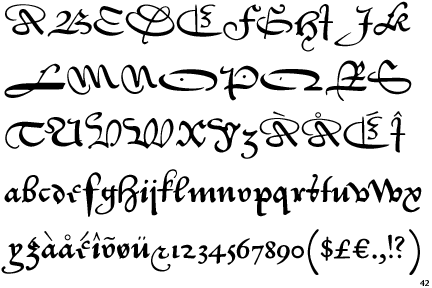 A B C D E F G H I J K
L M N O P Q R S
T U V W X Y Z À Å É Î
a b c d e f g h i j k l m n o p q r s t u v w x
y z à å é î õ ø ü & 1 2 3 4 5 6 7 8 9 0 ( $ £ € . , ! ? )
42